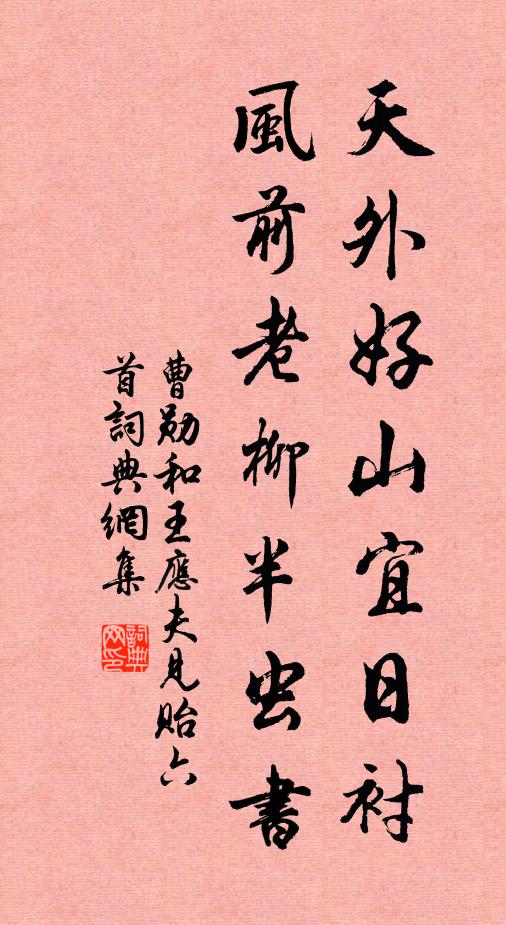 天外好山宜日衬
風前老柳半虫書
曹勛和王應夫見貽六
首詞典網集
詞典
网印